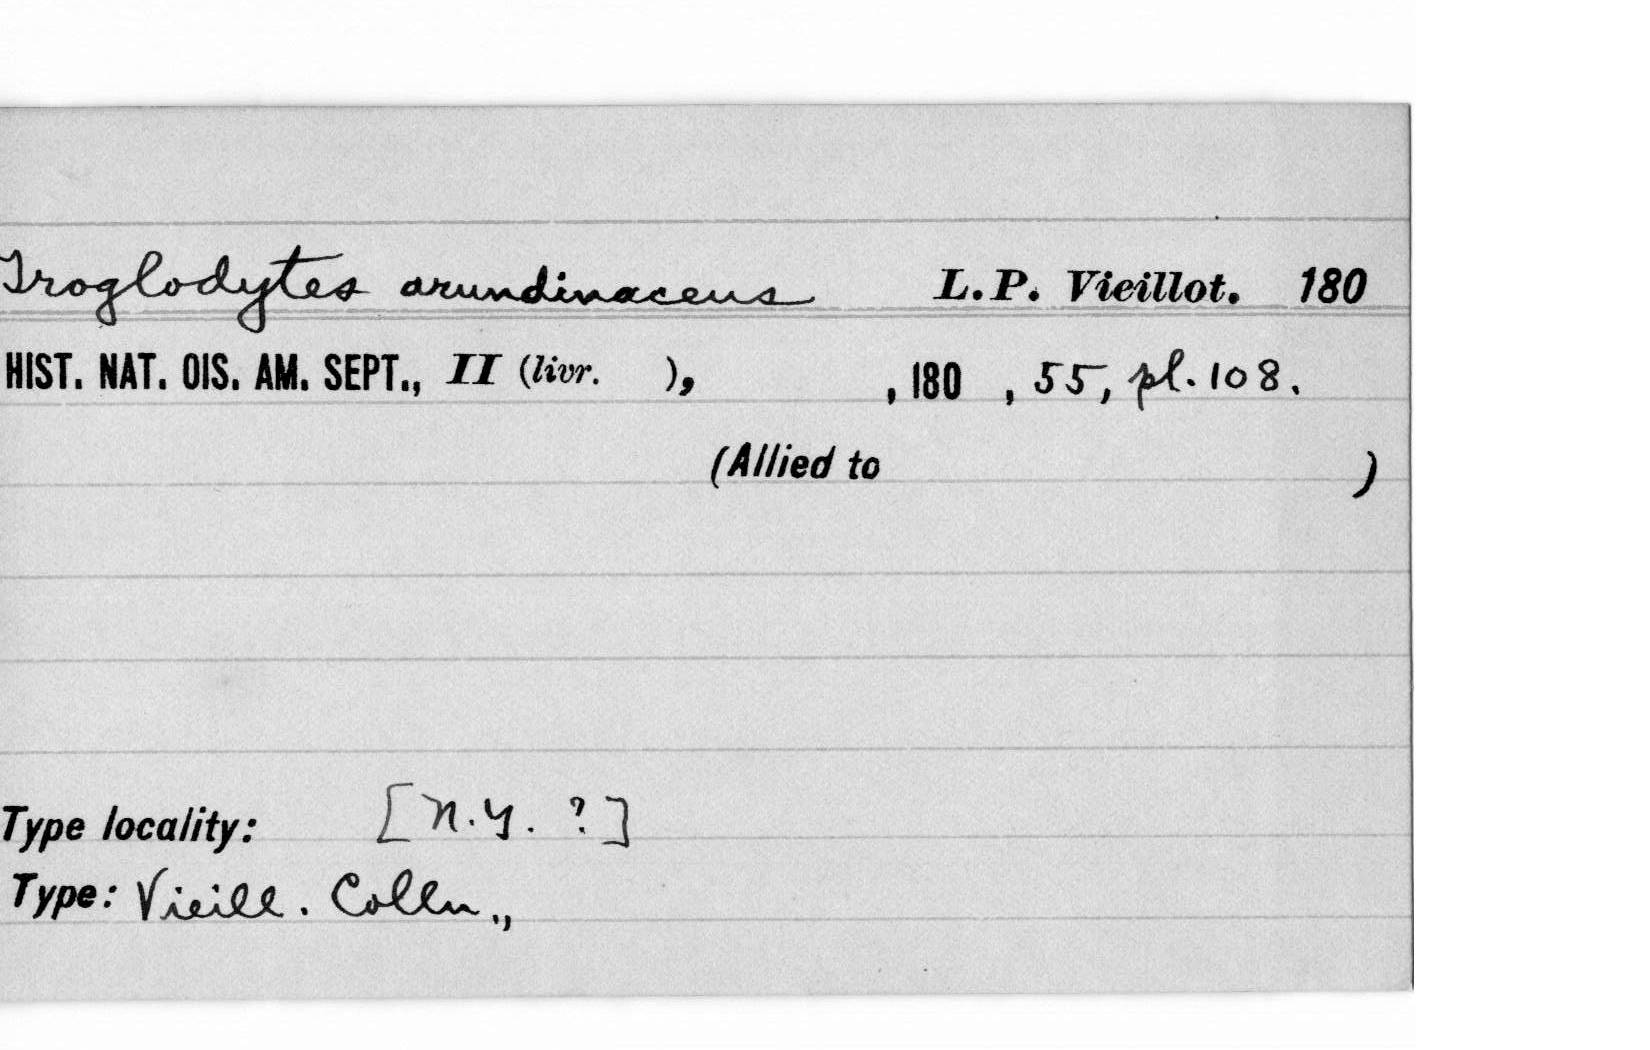 Troglodytes arundinaceus L.P. Vieillot. 180
HIST. NAT. OIS. AM. SEPT., II (livr. ), , 180 , 55, pl. 108.
(Allied to )
Type locality: [N.Y. ?]
Type: Vieill. Colln.,